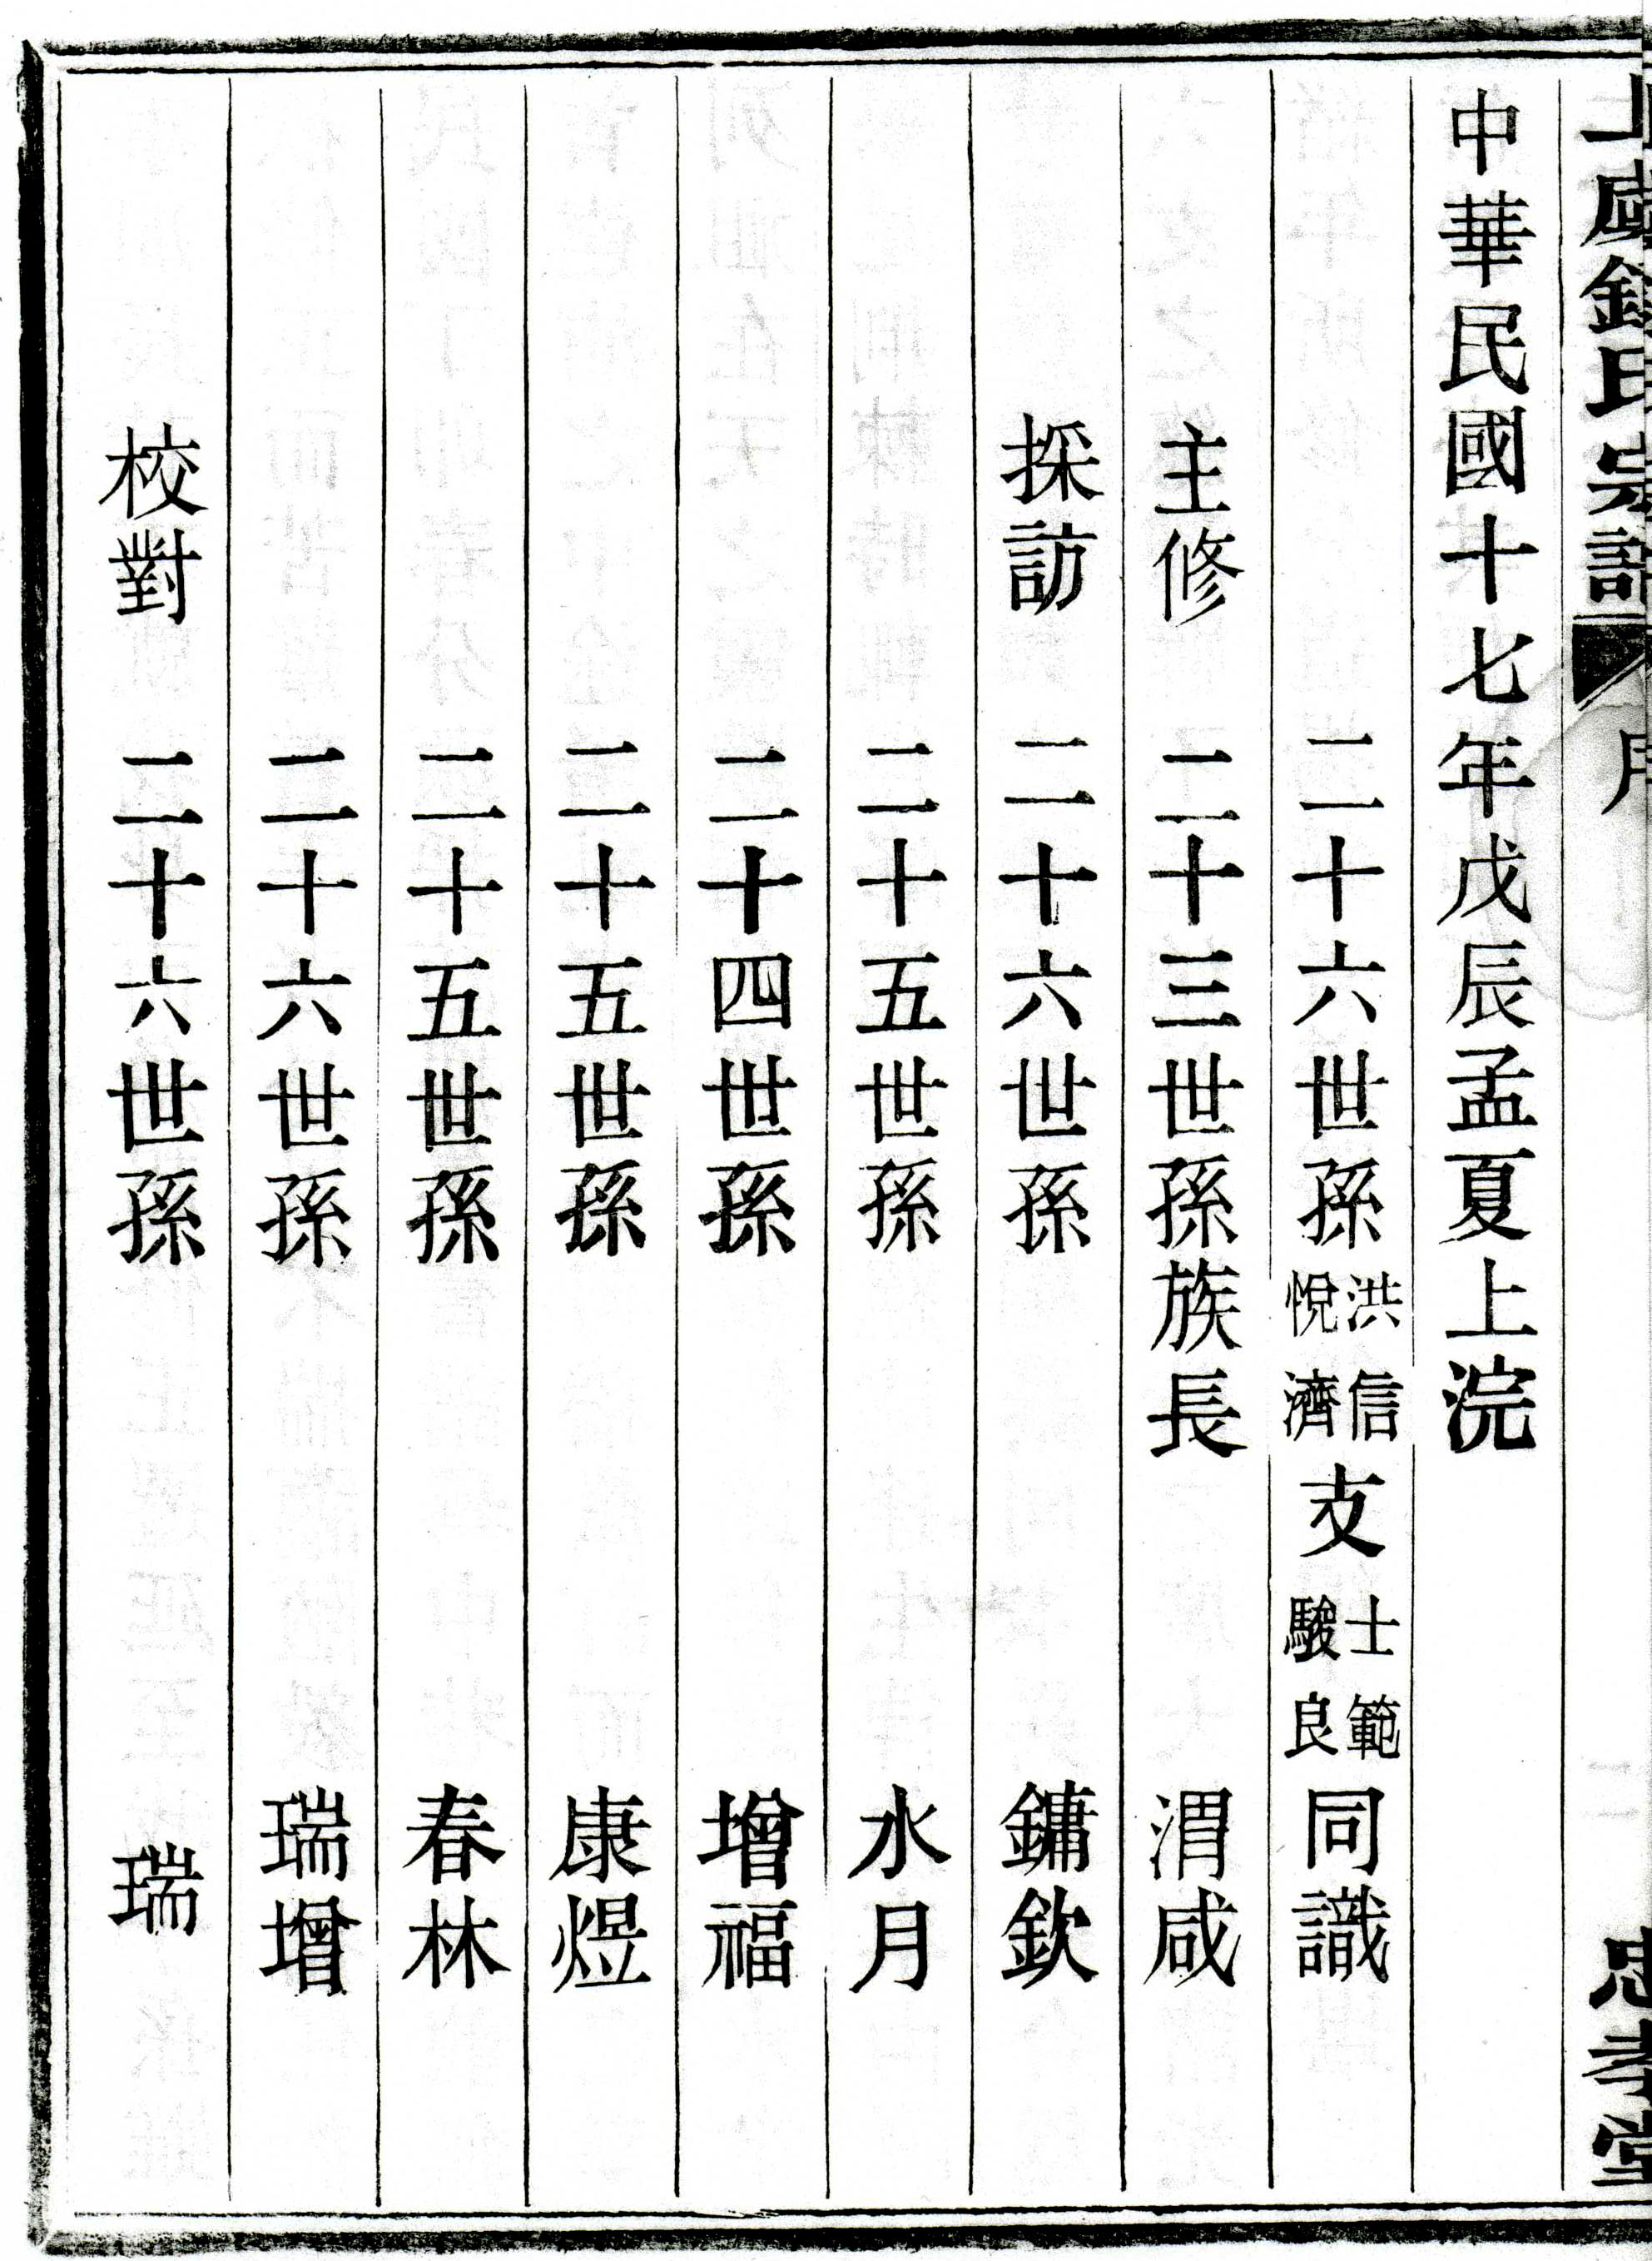 上虞鍾氏宗譜 序
忠孝堂
中華民國十七年戊辰孟夏上浣
二十六世孫洪信悅濟支士範駿良同識
主修 二十三世孫族長 渭咸
採訪 二十六世孫 鏞欽
二十五世孫 水月
二十四世孫 增福
二十五世孫 康煜
二十五世孫 春林
二十六世孫 瑞增
校對 二十六世孫 瑞